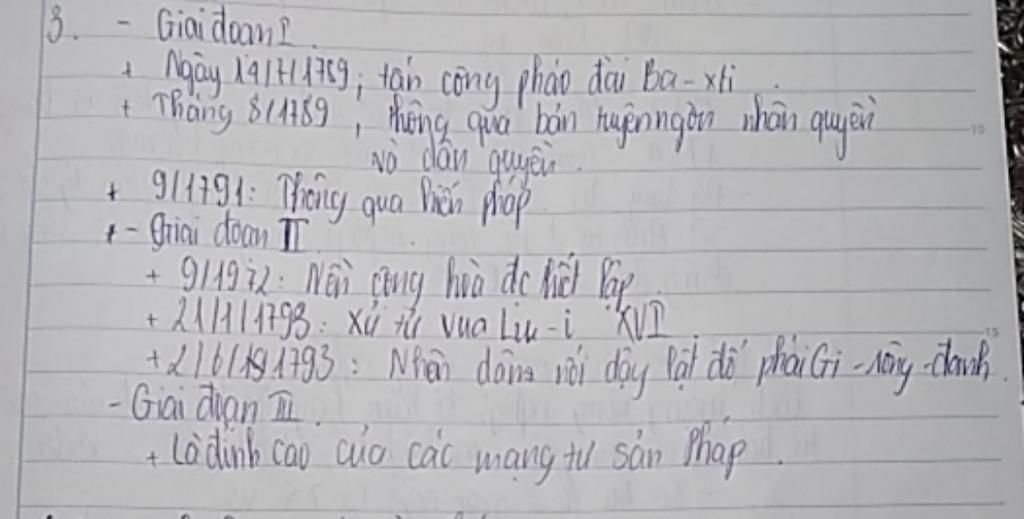 3. - Giai đoạn I.
+ Ngày 14/7/1789, tấn công pháo đài Ba-xti.
+ Tháng 8/1789, thông qua bản tuyên ngôn nhân quyền
và dân quyền.
+ 9/1791: Thông qua hiến pháp
+ - Giai đoạn II
+ 9/1972: Nền cộng hoà đc thiết lập.
+ 21/1/1793: Xử tử vua Lu-i XVI
+ 2/6/1793: Nhân dân nổi dậy lật đổ phái Gi-rông-đanh.
- Giai đoạn III.
+ Là đỉnh cao của các mạng tư sản Pháp.